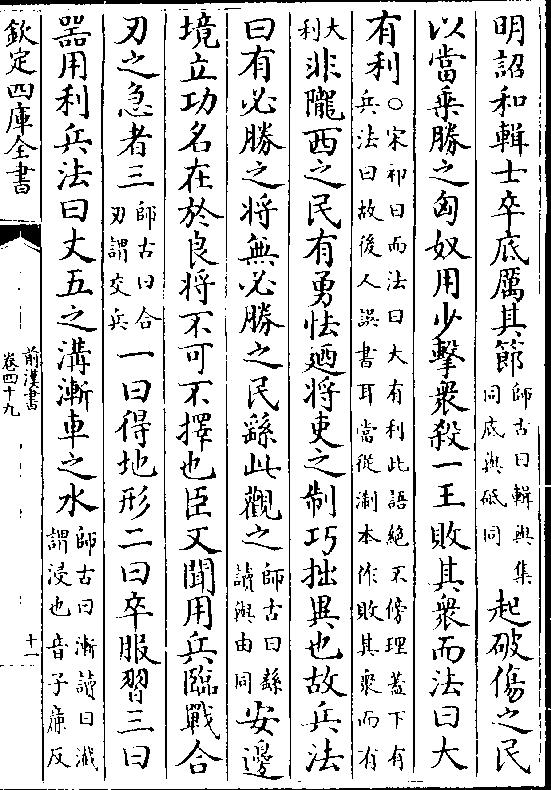 明詔和輯士卒底厲其節師古曰輯與集同底與砥同起破傷之民
以當乗勝之匈奴用少擊衆殺一王敗其衆而法曰大
有利○宋祁曰而法曰大有利此語絶不傍理蓋下有兵法曰故後人誤書耳當從淛本作敗其衆而有
大利非隴西之民有勇怯廼將吏之制巧拙異也故兵法
曰有必勝之將無必勝之民繇此觀之師古曰繇讀與由同安邊
境立功名在於良將不可不擇也臣又聞用兵臨戰合
刃之急者三師古曰合刃謂交兵一曰得地形二曰卒服習三曰
器用利兵法曰丈五之溝漸車之水師古曰漸讀曰瀸謂浸也音子亷反
欽定四庫全書
前漢書
卷四十九
十一